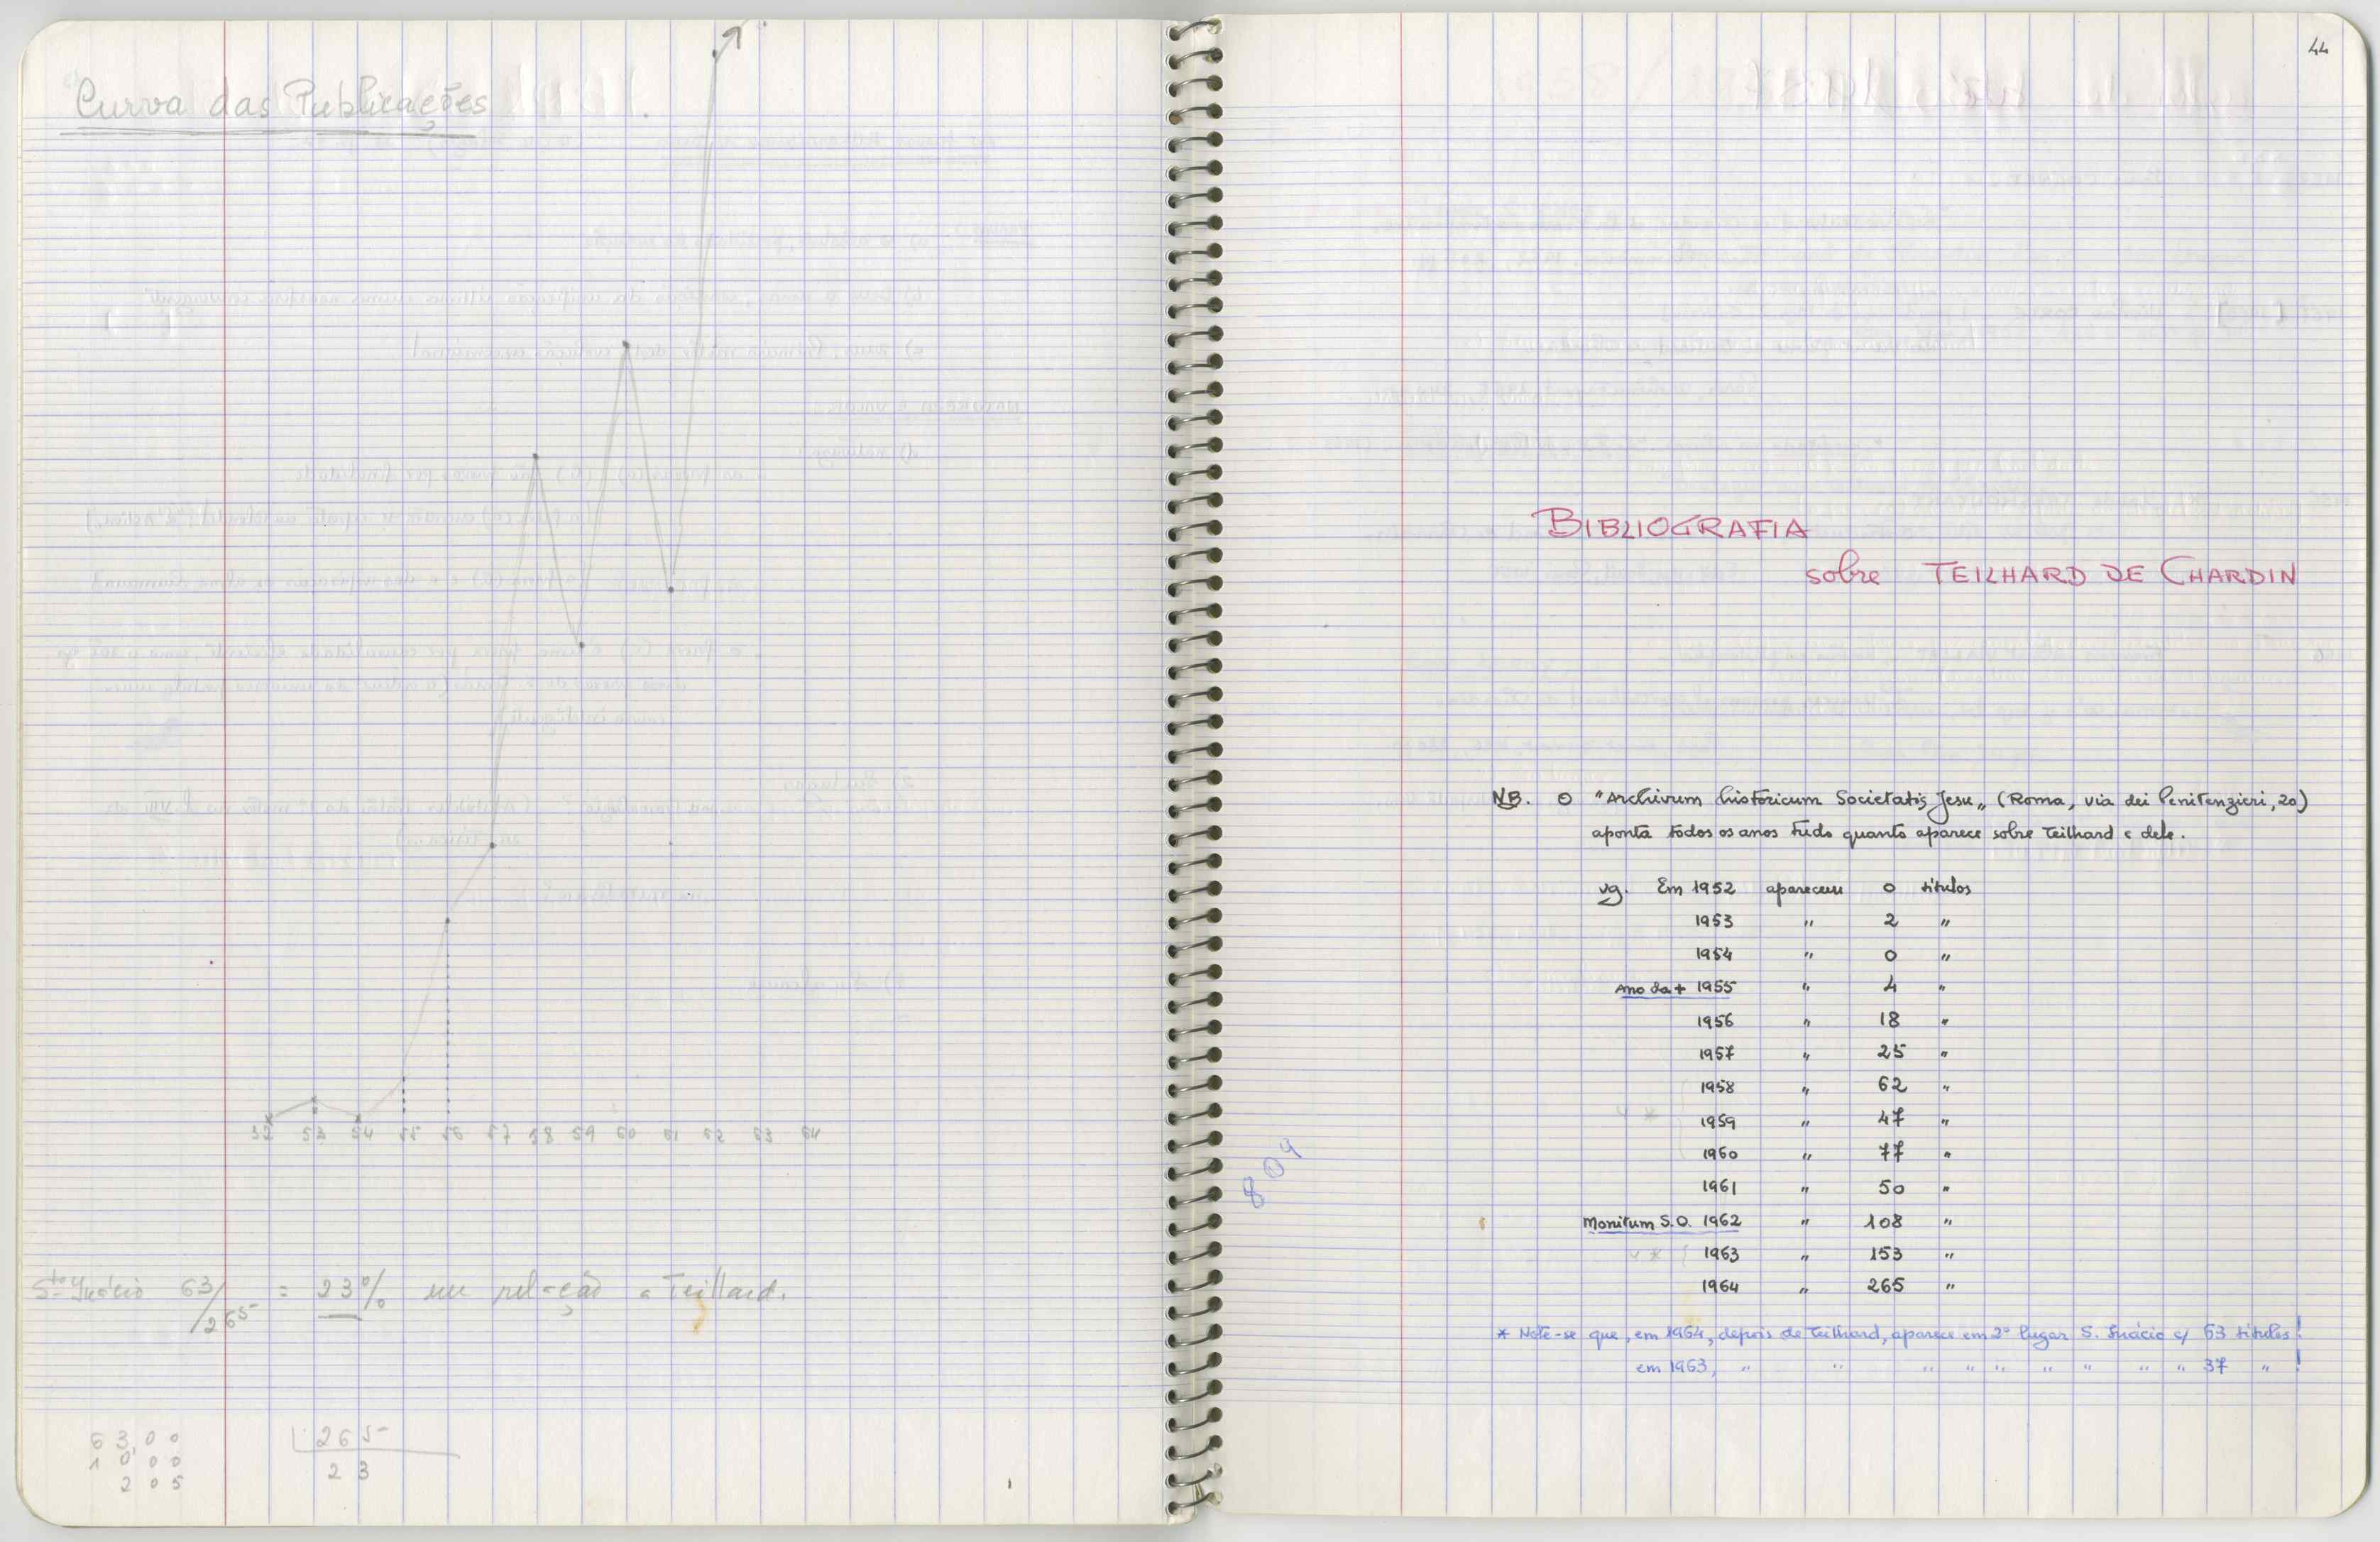 Curva das Publicações
52 53 54 55 56 57 58 59 60 61 62 63 64
Sto Inácio 63/265 = 23% em relação a Teilhard.
63,00 265
1000 23
205
44
BIBLIOGRAFIA
sobre TEILHARD DE CHARDIN
NB. O "Archivum historicum Societatis Jesu" (Roma, via dei Penitenzieri, 20)
aponta todos os anos tudo quanto aparece sobre Teilhard e dele.
vg. Em 1952 aparecem 0 títulos
1953 " 2 "
1954 " 0 "
Ano da + 1955 " 4 "
1956 " 18 "
1957 " 25 "
1958 " 62 "
1959 " 47 "
1960 " 77 "
1961 " 50 "
Monitum S.O. 1962 " 108 "
* 1963 " 153 "
1964 " 265 "
809
* Note-se que, em 1964, depois de Teilhard, aparece em 2º lugar S. Inácio c/ 63 títulos!
em 1963, " " " " " " " " " 37 " !